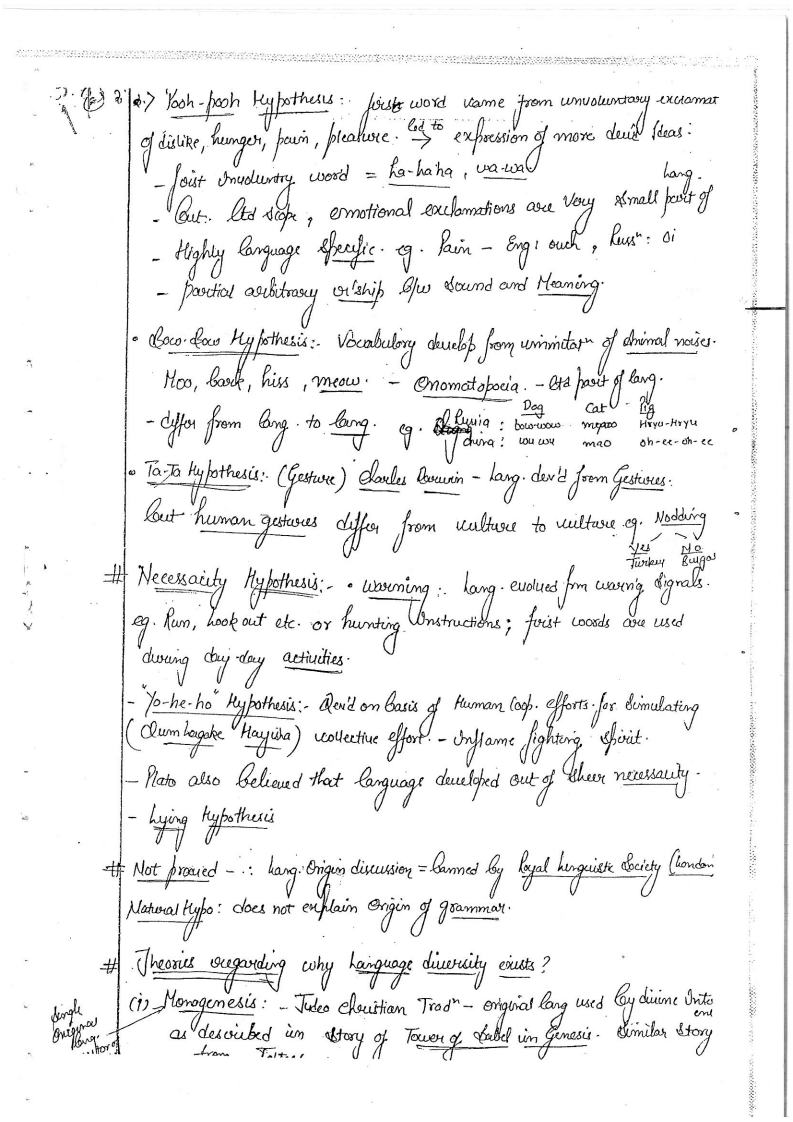 2.) Pooh-pooh Hypothesis :- first word came from involuntary exclamat
of dislike, hunger, pain, pleasure. led to → expression of more dev'd Ideas:
- first Involuntry word = ha-ha'ha, wa-wa
- but. ltd scope, emotional exclamations are very small part of lang.
- Highly language specific. eg. Pain - Eng: ouch, Russn: oi
- partial arbitrary r'ship b/w sound and Meaning.
• Bow-Bow Hypothesis:- Vocabulory develop from immitatn of animal noises.
Moo, bark, hiss, meow. - Onomatopocia. - ltd part of lang.
Dog Cat Pig
- differ from lang. to lang. eg. Russia : bow-wow meaao Hryu-Hryu
china : wu wu mao oh-ee-oh-ee
• Ta-Ta Hypothesis:- (Gesture) Charles Darwin - Lang. dev'd from Gestures.
but human gestures differ from culture to culture eg. Nodding
Yes No
Turkey Bulgar
# Necessacity Hypothesis:- • Warning :- Lang. evolved frm warn'g Signals.
eg. Run, Look out etc. or hunting Instructions; first words are used
during day-day activities.
- "Yo-he-ho" Hypothesis:- Dev'd on Basis of Human Coop. efforts for Simulating
(Dum lagake Hayisha) collective effort. - Inflame fighting spirit.
- Plato also believed that language developed out of sheer necessacity.
- Lying Hypothesis
# Not proved - ∴ Lang. Origin discussion = banned by Royal Linguistk Society (London
Natural Hypo : does not explain Origin of grammar.
# Theories regarding why Language diversity exists?
(i) Monogenesis : - Judeo Christian Tradn - original lang used by divine Into
ent
as described in story of Tower of Babel in Genesis. Similar Story
Single
Original
lang.
from Toltec